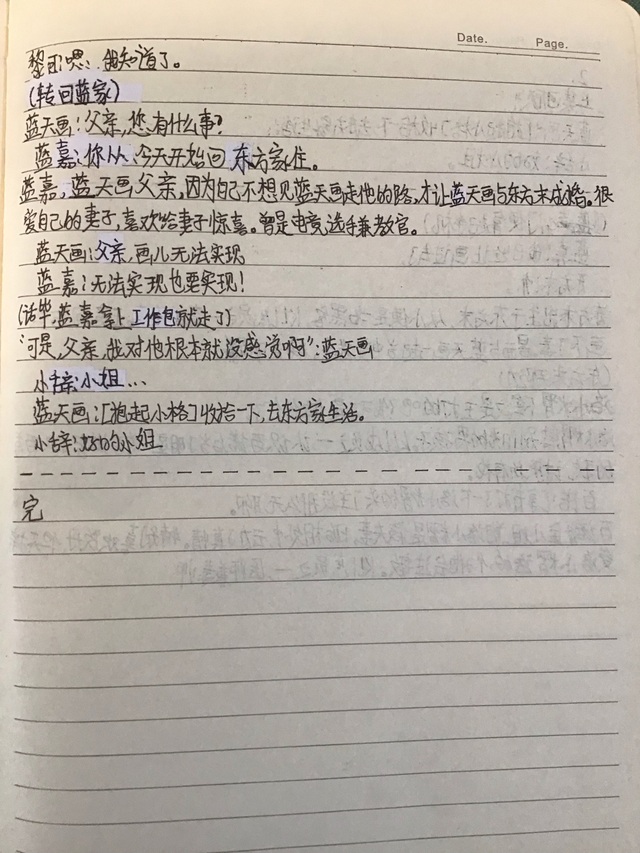 Date.    Page.
黎可:嗯…我知道了。
(转回蓝家)
蓝天画:父亲,您有什么事?
蓝嘉:你从今天开始回东方家住。
蓝嘉,蓝天画父亲,因为自己不想见蓝天画走他的路,才让蓝天画与东方末成婚。很
爱自己的妻子,喜欢给妻子惊喜。曾是电竞选手兼教官。
蓝天画:父亲,画儿无法实现
蓝嘉:无法实现也要实现!
(话毕,蓝嘉拿上工作包就走了)
“可是,父亲,我对他根本就没感觉啊”:蓝天画
小辞:小姐…
蓝天画:[抱起小格]收拾一下,去东方家生活。
小辞:好的小姐
完